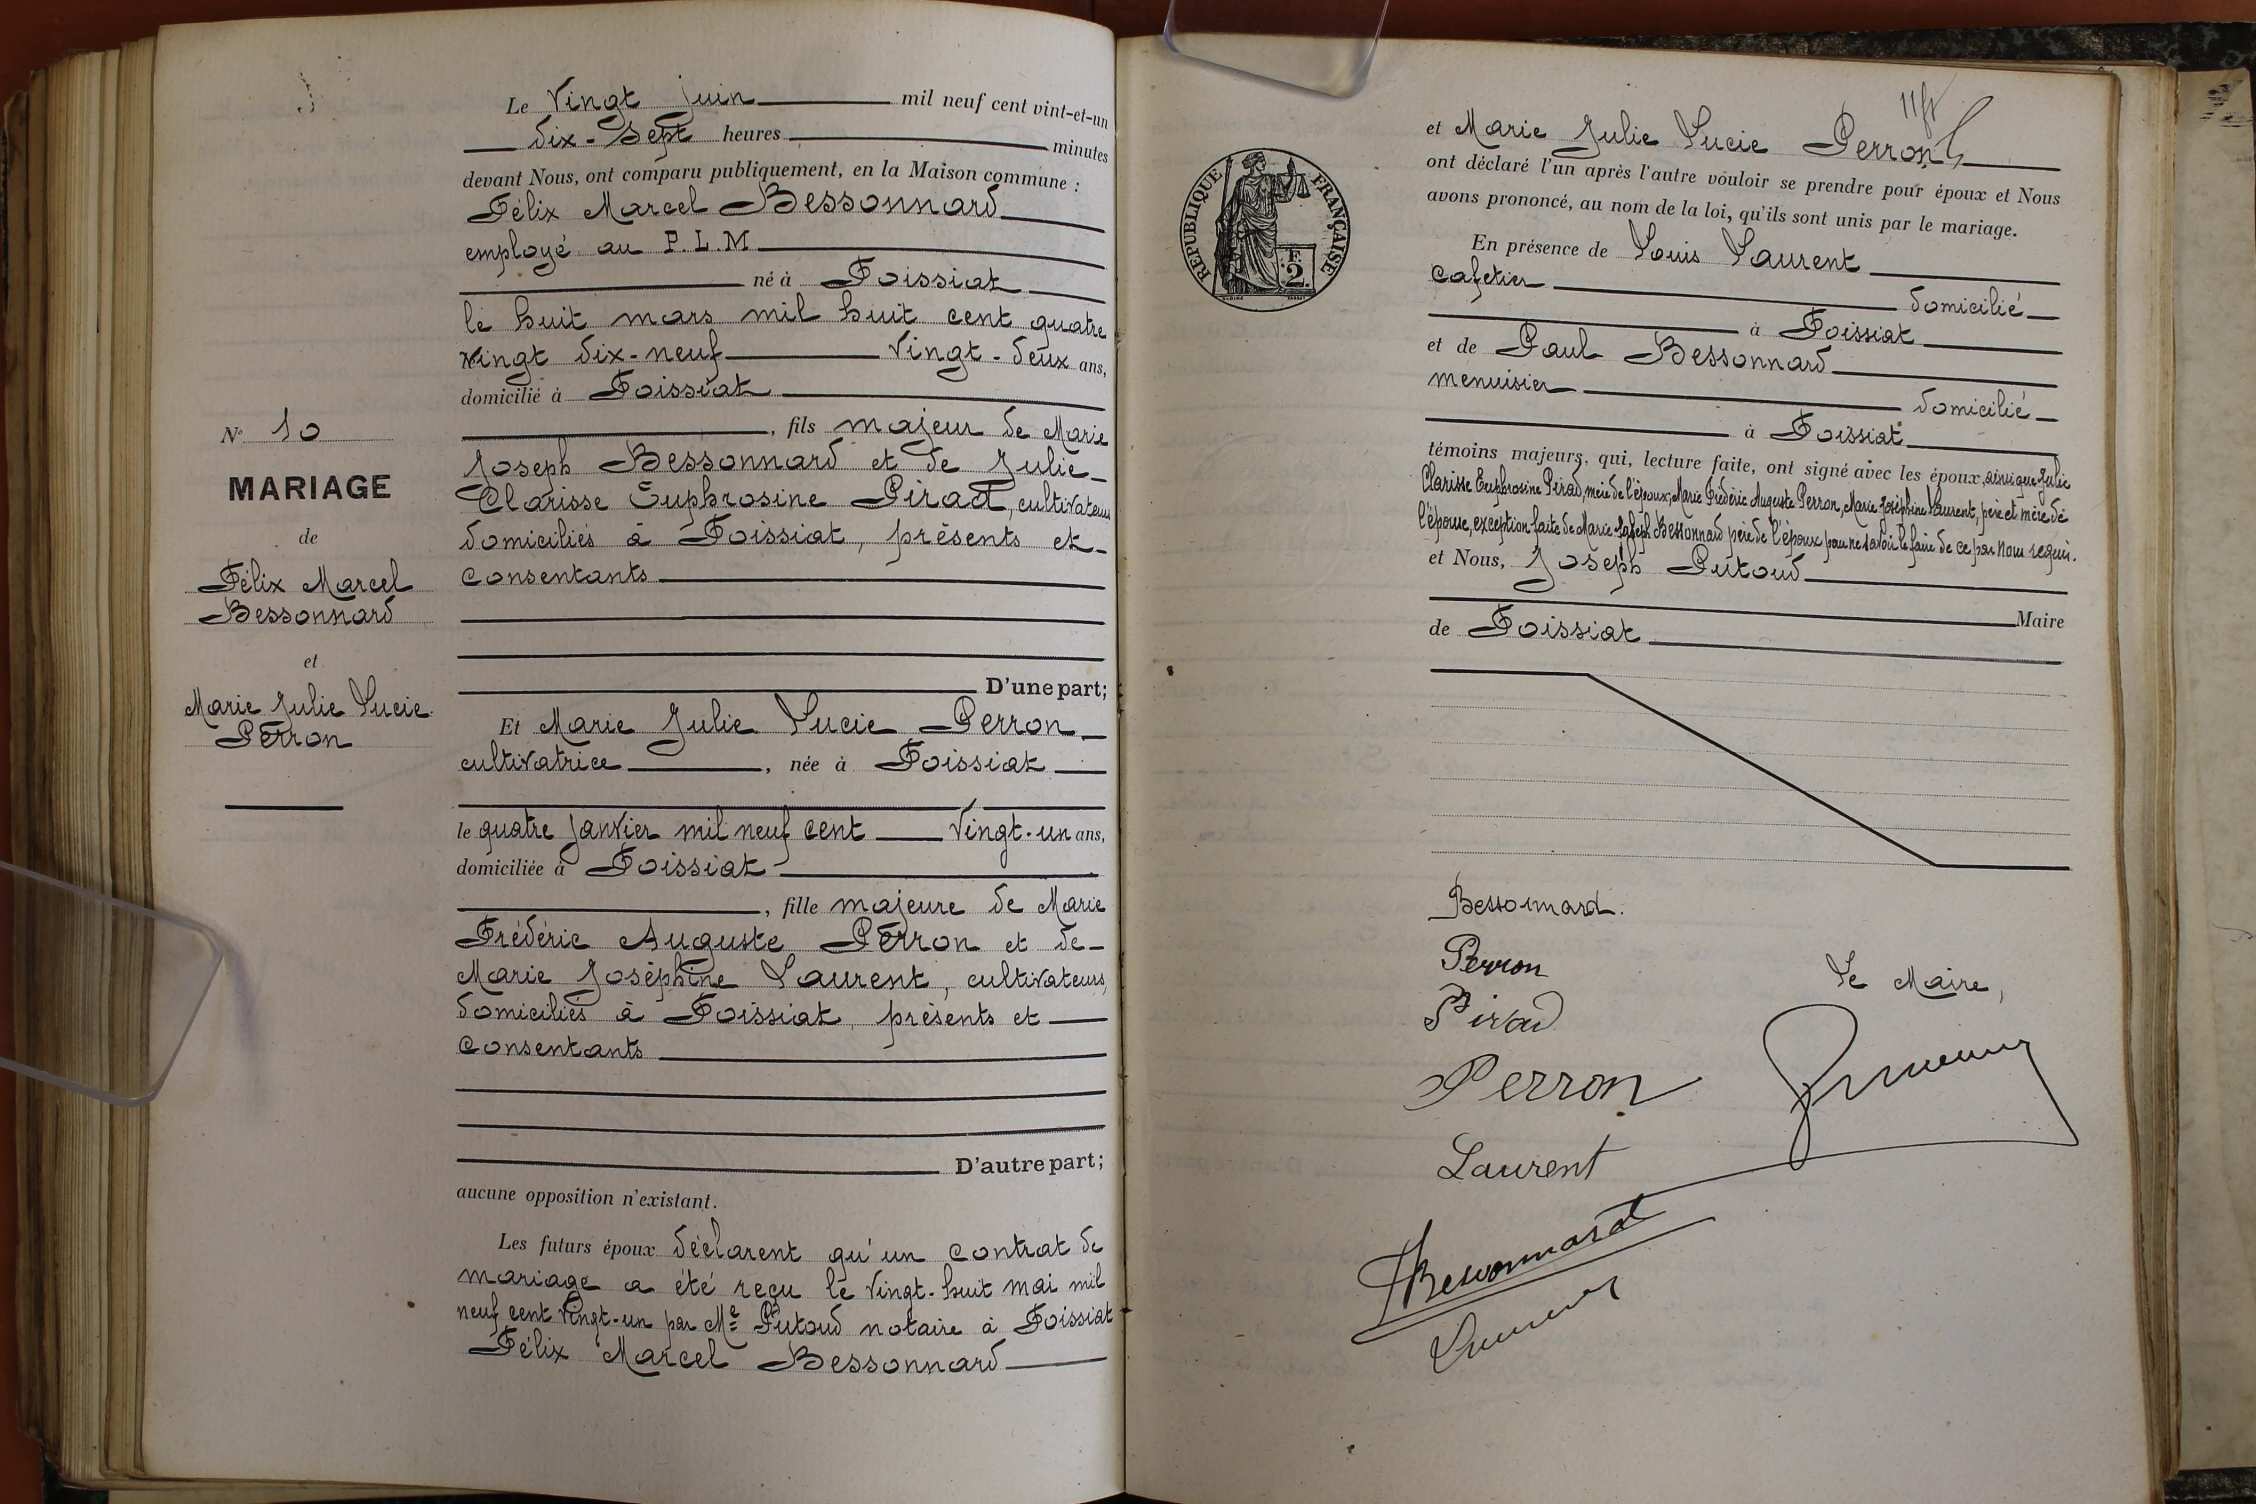 Le Vingt juin mil neuf cent vint-et-un
dix-sept heures minutes
devant Nous, ont comparu publiquement, en la Maison commune :
Félix Marcel Bessonnard
employé au P.L.M
né à Foissiat
le huit mars mil huit cent quatre
vingt dix-neuf Vingt-deux ans,
domicilié à Foissiat
, fils majeur de Marie
Joseph Bessonnard et de Julie
Clarisse Euphrosine Pirad, cultivateurs
domiciliés à Foissiat, présents et
consentants
D'une part;
Et Marie Julie Lucie Perron
cultivatrice, née à Foissiat
le quatre janvier mil neuf cent Vingt-un ans,
domiciliée à Foissiat
, fille majeure de Marie
Frédéric Auguste Perron et de
Marie Joséphine Laurent, cultivateurs,
domiciliés à Foissiat, présents et
consentants
D'autre part;
aucune opposition n'existant.
Les futurs époux déclarent qu'un contrat de
mariage a été reçu le vingt-huit mai mil
neuf cent vingt-un par Me Putoud notaire à Foissiat
Félix Marcel Bessonnard
No 10
MARIAGE
de
Félix Marcel
Bessonnard
et
Marie Julie Lucie
Perron
RÉPUBLIQUE FRANÇAISE
2 F.
et Marie Julie Lucie Perron
ont déclaré l'un après l'autre vouloir se prendre pour époux et Nous
avons prononcé, au nom de la loi, qu'ils sont unis par le mariage.
En présence de Louis Laurent
cafetier domicilié
à Foissiat
et de Paul Bessonnard
menuisier domicilié
à Foissiat
témoins majeurs, qui, lecture faite, ont signé avec les époux, ainsi que Julie
Clarisse Euphrosine Pirad, mère de l'époux, Marie Frédéric Auguste Perron, Marie Joséphine Laurent, père et mère de
l'épouse, exception faite de Marie Joseph Bessonnard père de l'époux pour ne savoir le faire de ce par nous requis.
et Nous, Joseph Putoud
Maire
de Foissiat
Bessonnard.
Perron
Pirad
Perron
Laurent
Bessonnard
Le Maire,